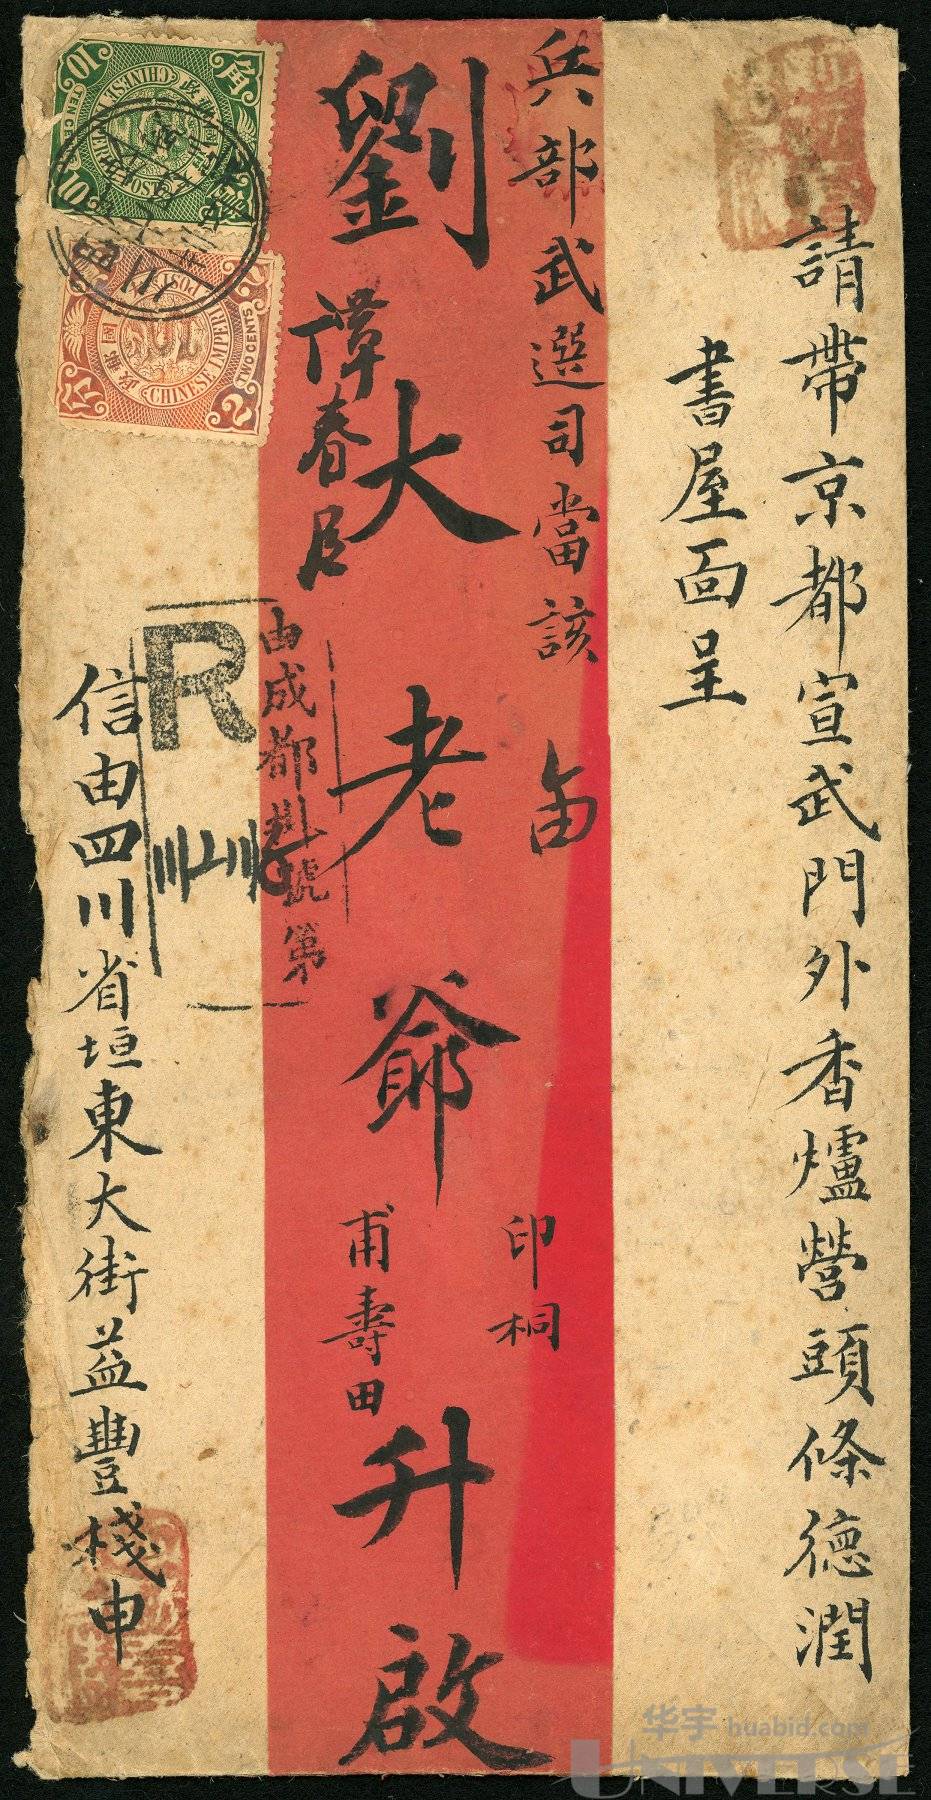 請帶京都宣武門外香爐營頭條德潤
書屋面呈
兵部武選司當該
印桐
劉大老爺升啟
甫壽田
譚春
由成都
號第
R
信由四川省垣東大街益豐棧申
10
角
10
TEN CE
CHINESE
2
分
2
TWO CENTS
CHINESE IMPERI
POS
四川
华宇 huabid.com
UNIVERSE